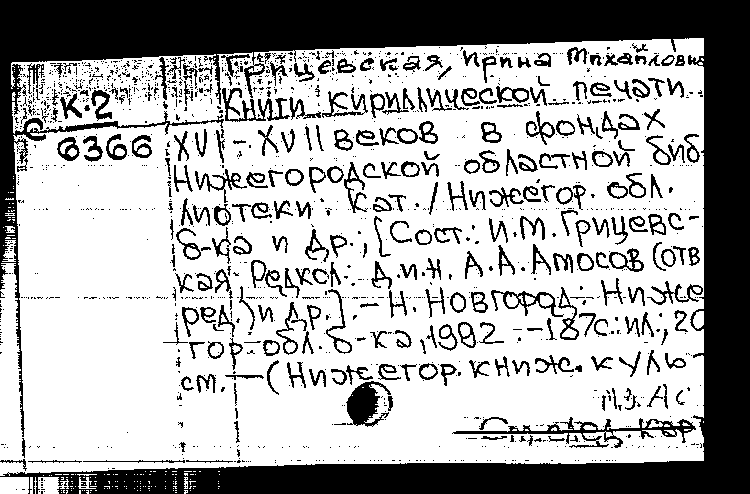 Грицевская, Ирина Михайловна
С К.2
6366
Книги кириллической печати
XVI - XVII веков в фондах
Нижегородской областной биб-
лиотеки: Кат. / Нижегор. обл.
б-ка и др.; [Сост.: И.М. Грицевс-
кая; Редкол.: д.и.н. А.А. Амосов (отв
ред.) и др.]. — Н. Новгород: Ниже
гор. обл. б-ка, 1992. — 187с.: ил.; 20
см. — (Нижегор. книж. куль-
См. след. кар